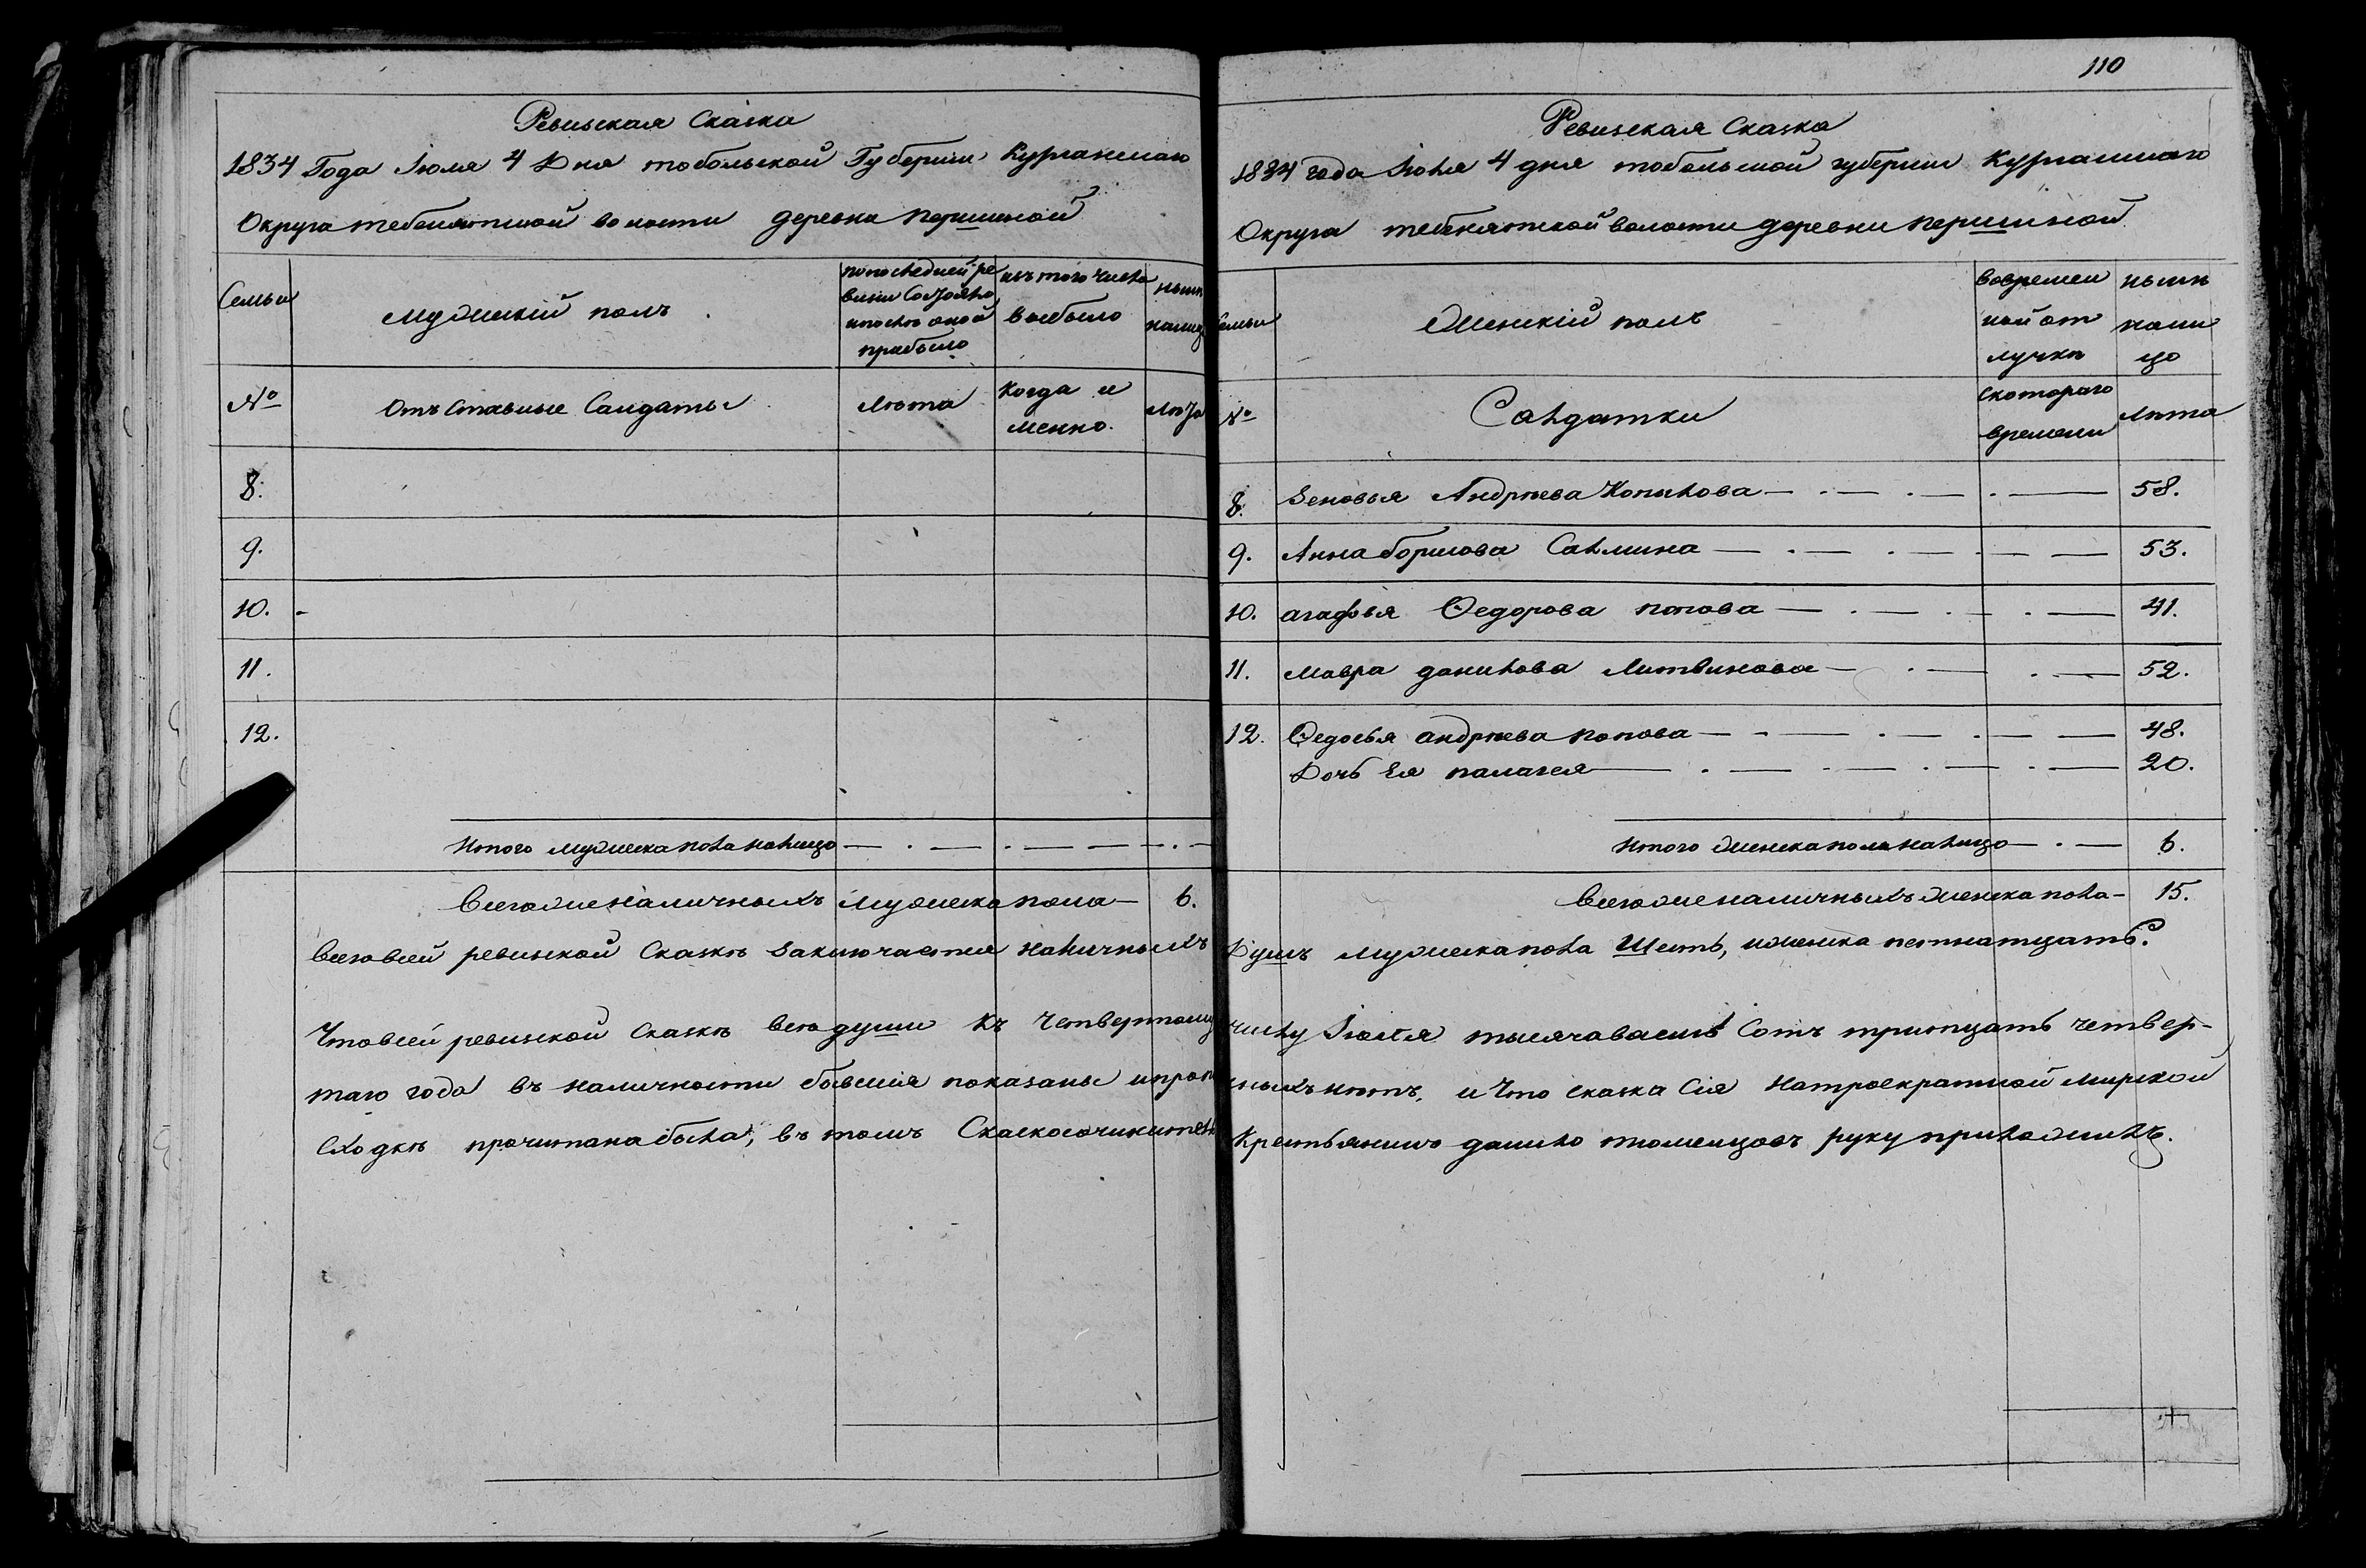 110
Ревизская Сказка
1834 Года Июля 4 Дня тобольской Губернии Курганскаго
Округа тебенятской волости деревни першиной
Семьи
мужеский полъ
попоследней ре
визии Состояло
ипослѣ оной
прибыло
изъ того числа
выбыло
нынѣ
налиц
№
Отъ Ставные Салдаты
Лѣта
Когда и
менно.
Лѣта
8.
9.
10.
11.
12.
Итого мужеска пола налицо
Всего же наличныхъ мужеска пола 6.
Ревизская Сказка
1834 года Июля 4 дня тобольской губернии Курганскаго
Округа тебенятской волости деревни першиной
Семьи
Женский полъ
вовремен
ной от
лучкѣ
нынѣ
нали
цо
№
Салдатки
скотораго
времени
Лѣта
8. Зеновья Андрѣева Копылова 58.
9. Анна борисова Салмина 53.
10. агафья Федорова попова 41.
11. мавра данилова Литвинова 52.
12. Федосья андрѣева попова 48.
Дочь Ея палагея 20.
Итого женска пола налицо 6.
Всегоже наличныхъ женска пола 15.
Всеювсей ревиской Сказкѣ Заключается наличныхъ Душъ мужеска пола Шесть, иженска петнатцать.
Чтовсей ревиской Сказкѣ всѣ души къ Четвертому числу Июля тысячавасемь Сотъ тритцать четвер-
таго года въ наличности бывшия показаны ипроп ныхъ нѣтъ, и Что сказка Сия Натроекратной мирской
Сходкѣ прочитана была, въ томъ Крестьянинъ данило тюменцовъ руку приложилъ.